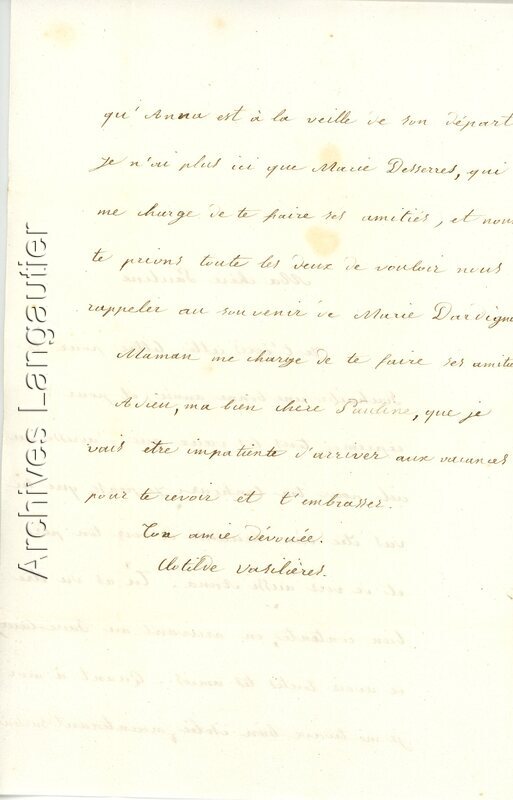 qu'Anna est à la veille de son départ
je n'ai plus ici que Marie Desserres, qui
me charge de te faire ses amitiés, et nous
te prions toute les deux de vouloir nous
rappeler au souvenir de Marie Dardigna
Maman me charge de te faire ses amitié
Adieu, ma bien chère Pauline, que je
vais etre impatiente d'arriver aux vacances
pour te revoir et t'embrasser.
Ton amie dévouée.
Clotilde Vasilières.
Archives Langautier